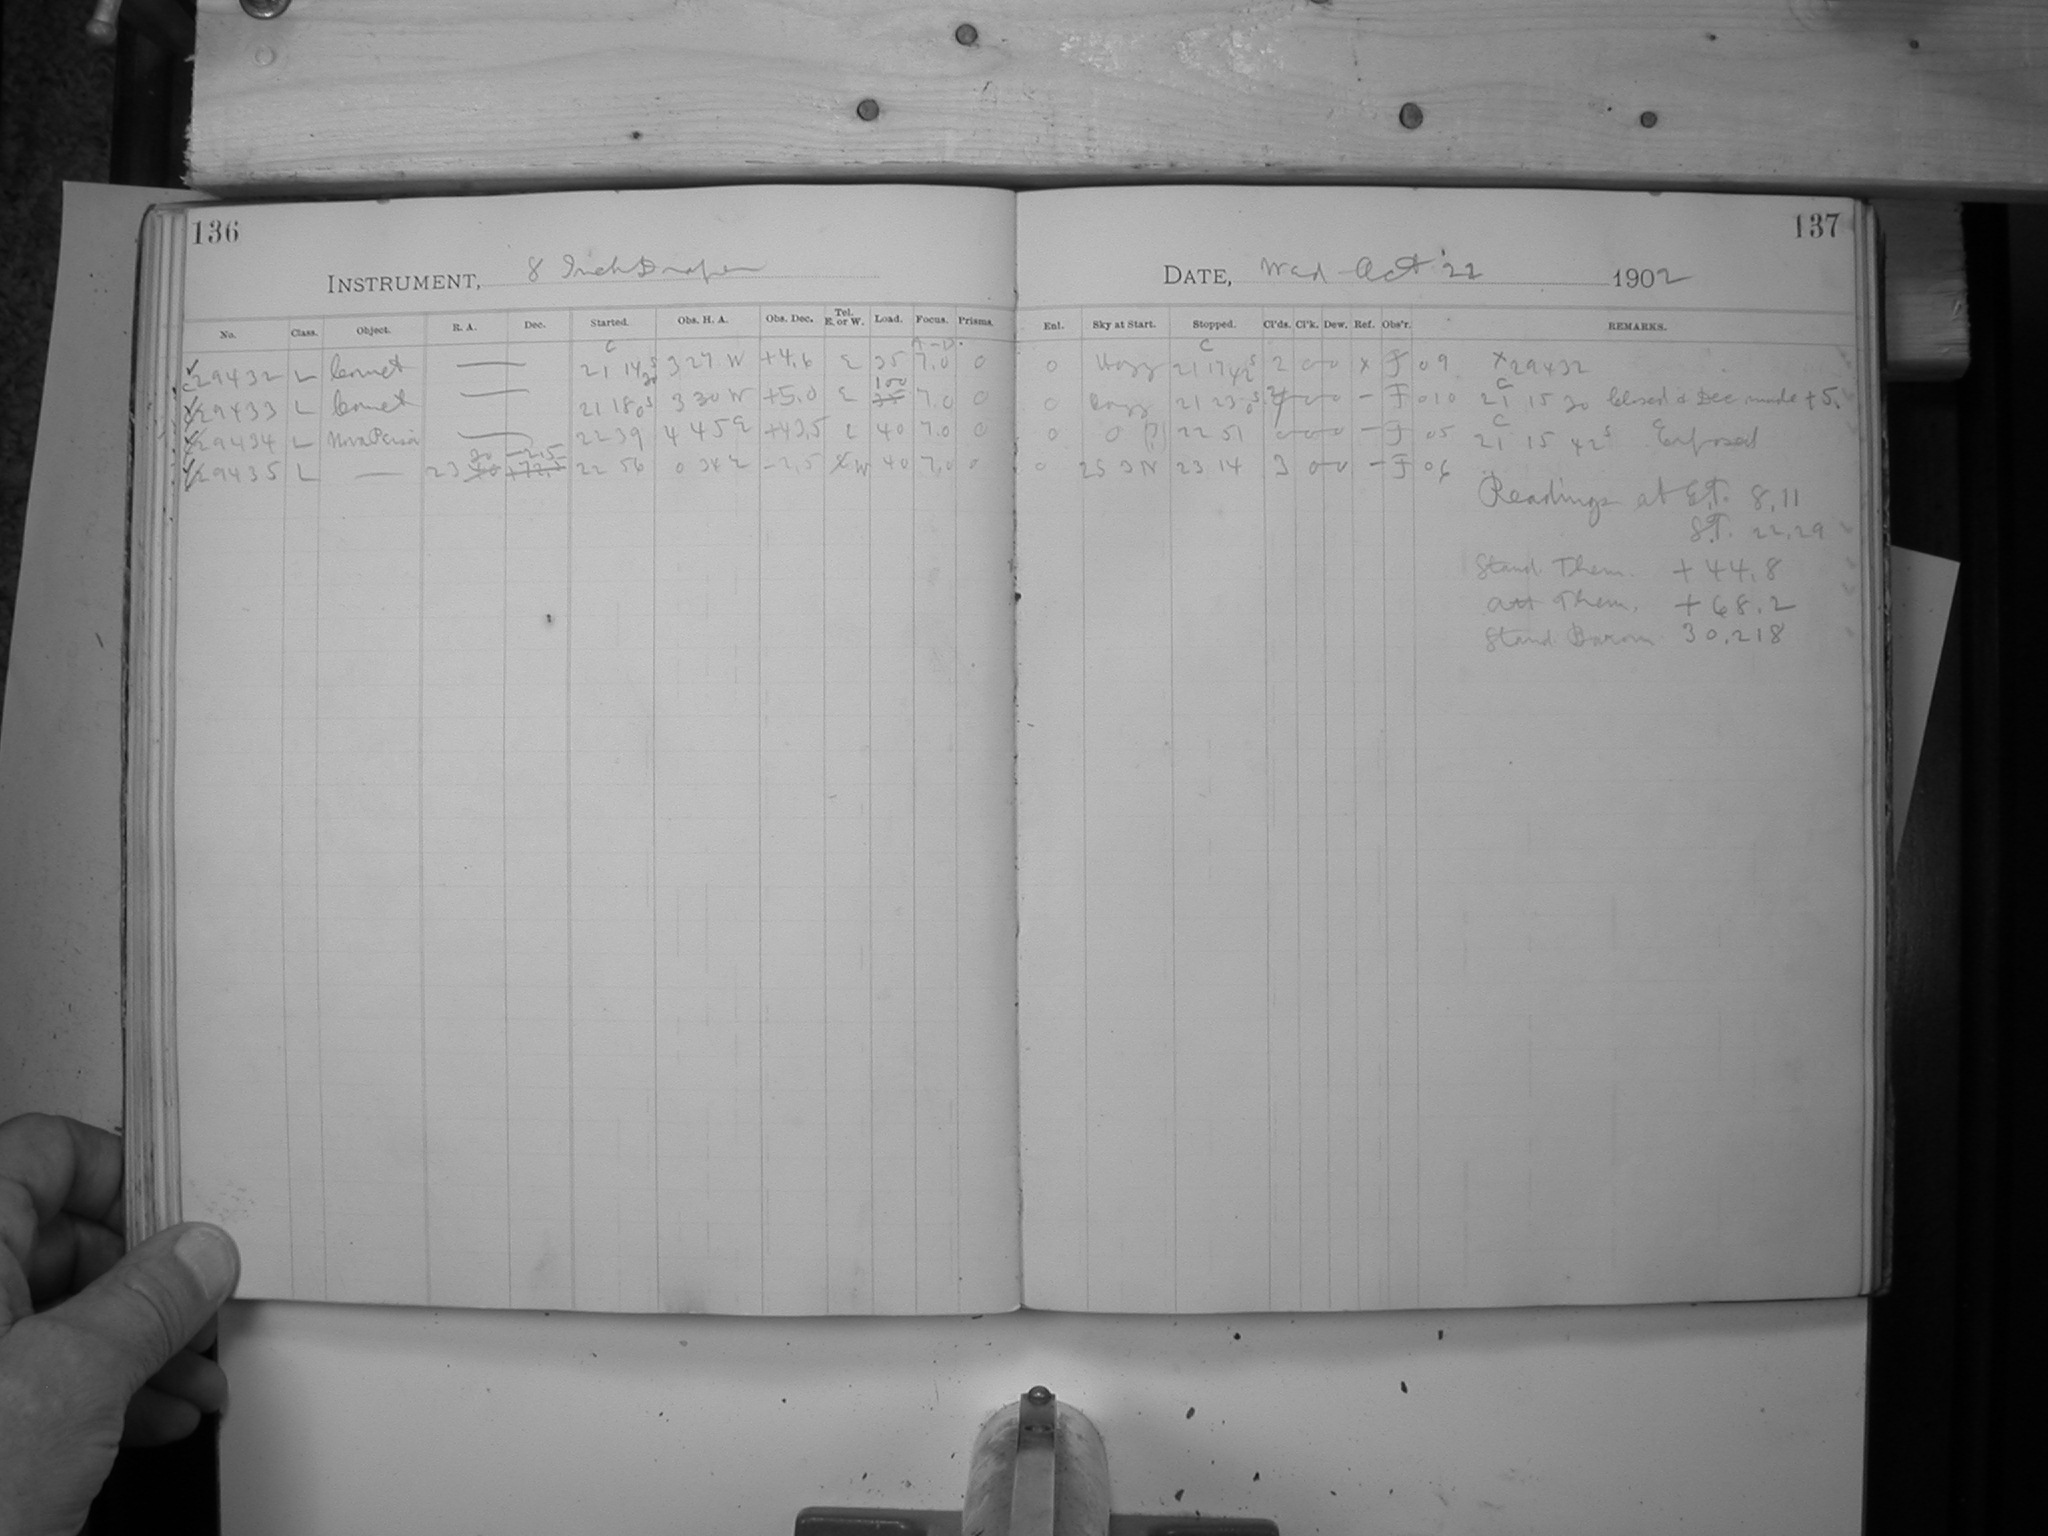 136
137
INSTRUMENT, 8 Inch Draper
DATE, Wed Oct 22 1902
No. Class. Object. R. A. Dec. Started. Obs. H. A. Obs. Dec. Tel. E. or W. Load. Focus. Prisms. Enl. Sky at Start. Stopped. Cl'ds. Cl'k. Dew. Ref. Obs'r. REMARKS.
29432 L Comet — 21 14 30s 3 27 W +4.6 E 35 7.0 0 0 Hazy 21 17 42s 2 0 0 x F 09 x29432
29433 L Comet — 21 18 0s 3 30 W +5.0 E 100 7.0 0 0 Hazy 21 23 0s 0 0 – F 010 21 15 30 Closed & Dec made +5.
29434 L Nova Persei — 22 39 4 45 E +43.5 E 40 7.0 0 0 0 (?) 22 51 0 0 0 – F 05 21 15 42s Exposed
29435 L — 23 30 –2.5 22 56 0 34 E –2.5 W 40 7.0 0 0 25 3 N 23 14 3 0 0 – F 06
Readings at E.T. 8.11
S.T. 22.29
Stand Therm. +44.8
Att Therm. +68.2
Stand Barom 30.218